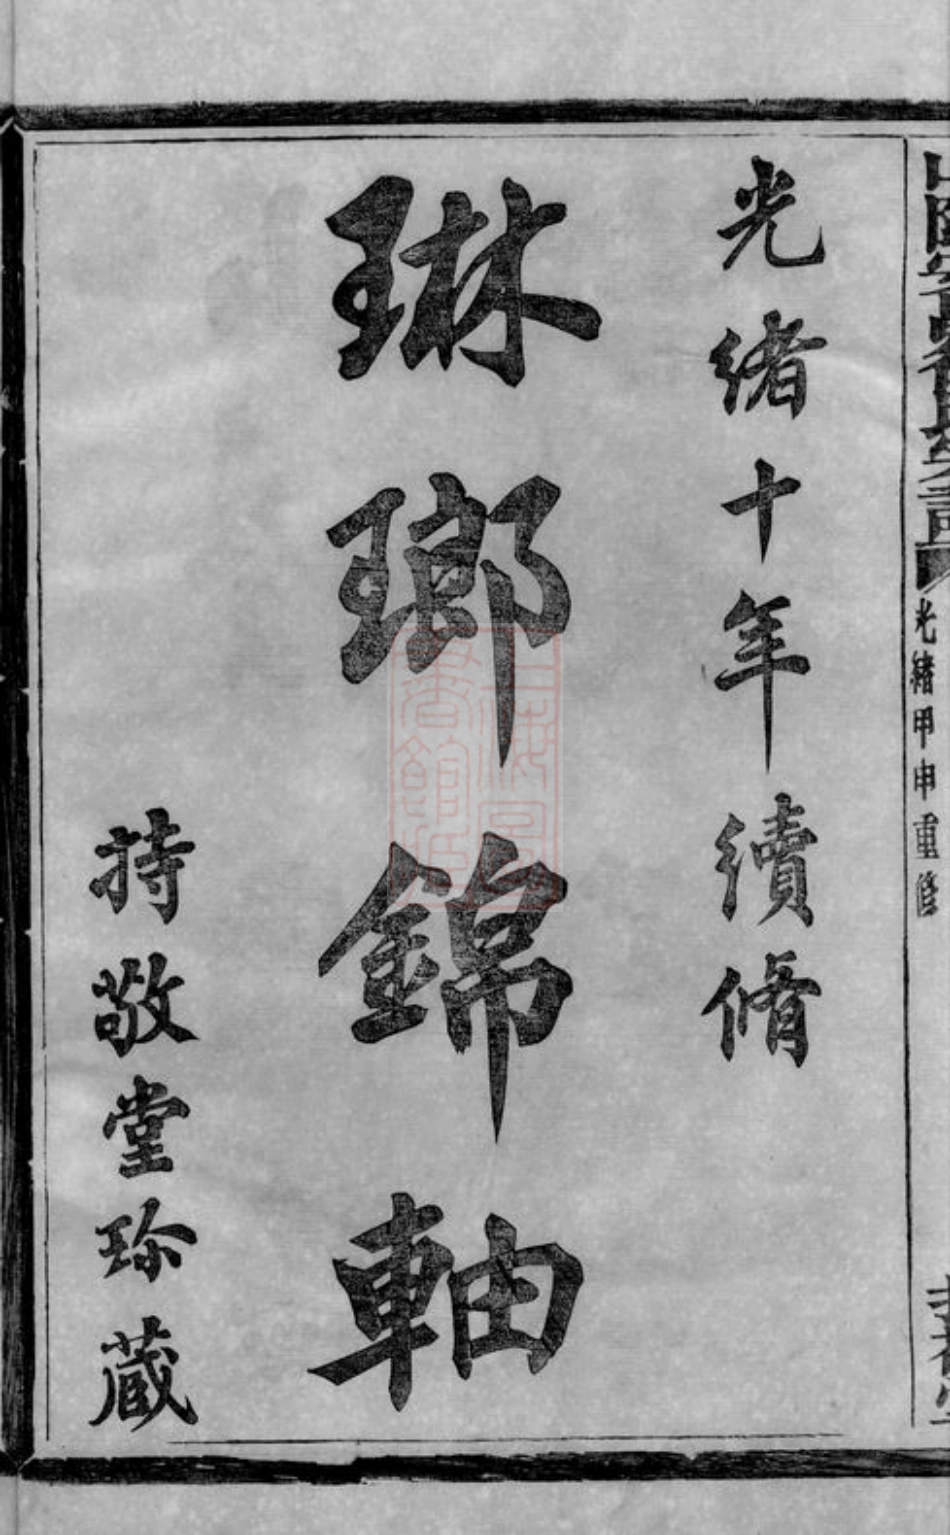 光緒甲申重修
光緒十年續脩
琳瑯錦軸
持敬堂珍藏